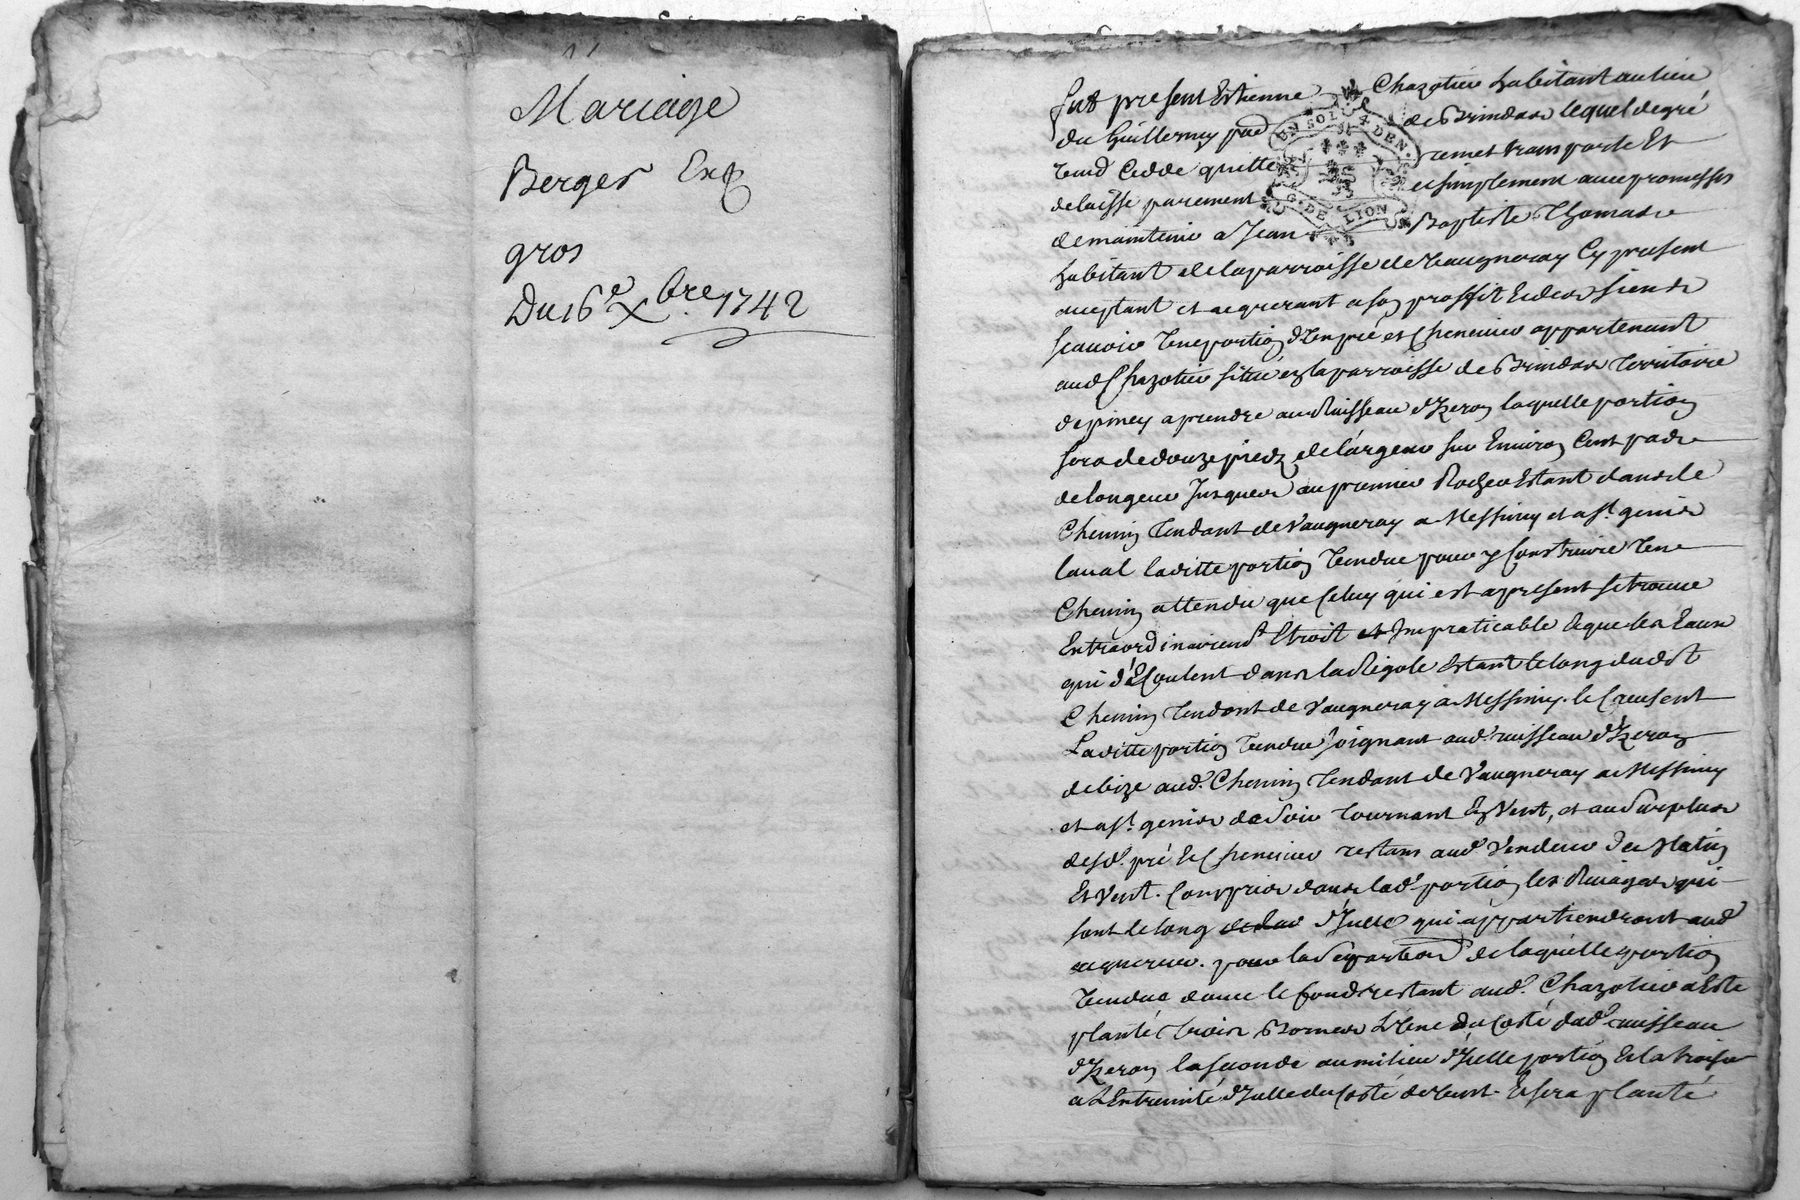 Mariage
Berger Exp
gros
Du 16e Xbre. 1742
Fut present Estienne Chazotier habitant au lieu
du Guillermy de Brindas lequel de gré
vend cedde quitte remet transporte Et
delaisse purement et simplement avec promesses
de maintenir a Jean Baptiste Thomas
UN SOL 4 DEN.
G. DE LION
habitant de la parroisse de Vaugneray Cy present
acceptant et acquerant a son proffit & des siens
scavoir Une portion d'Un pré et Chenevier appartenant
aud Chazotier situé en la parroisse de Brindas Territoire
de piney a prendre au Ruisseau d'Izeron laquelle portion
sera de douze piedz de largeur sur Environ Cent pas
de longeur Jusques au premier Rocher Estant dans le
Chemin Tendant de Vaugneray a Messimy et a St. genis
laval laditte portion Vendue pour y Construire Une
Chemin attendu que Celuy qui est a present se trouve
Extraordinairemt Etroit et Impraticable & que les Eaux
qui s'Ecoulent dans la Rigole Estant le long dudit
Chemin Tendant de Vaugneray a Messimy. le Creusent
Laditte portion Vendue Joignant aud. ruisseau d'Izeron
de bize aud. Chemin Tendant de Vaugneray a Messimy
et a St. genis de Soir Tournant En Vent, et au Surplus
desd. pré & Chenevier restans aud. Vendeur de Matin
Et Vent. Compris dans lad. portion les Rivages qui
sont le long d'Icelle qui appartiendront aud
acquereur. pour la Separation de laquelle portion
Vendue d'avec le fond restant aud. Chazotier a Esté
planté trois Bornes L'Une du Costé dud. ruisseau
d'Izeron la seconde au milieu d'Icelle portion & la troise
a L'Extremité d'Icelle du Costé de Vent. & sera planté